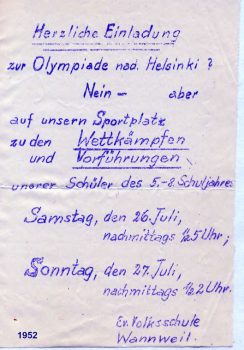 Herzliche Einladung
zur Olympiade nach Helsinki ?
Nein – aber
auf unsern Sportplatz
zu den Wettkämpfen
und Vorführungen
unserer Schüler des 5.-8. Schuljahres
Samstag, den 26. Juli,
nachmittags ½5 Uhr;
Sonntag, den 27. Juli,
nachmittags ½2 Uhr.
Ev. Volksschule
Wannweil.
1952